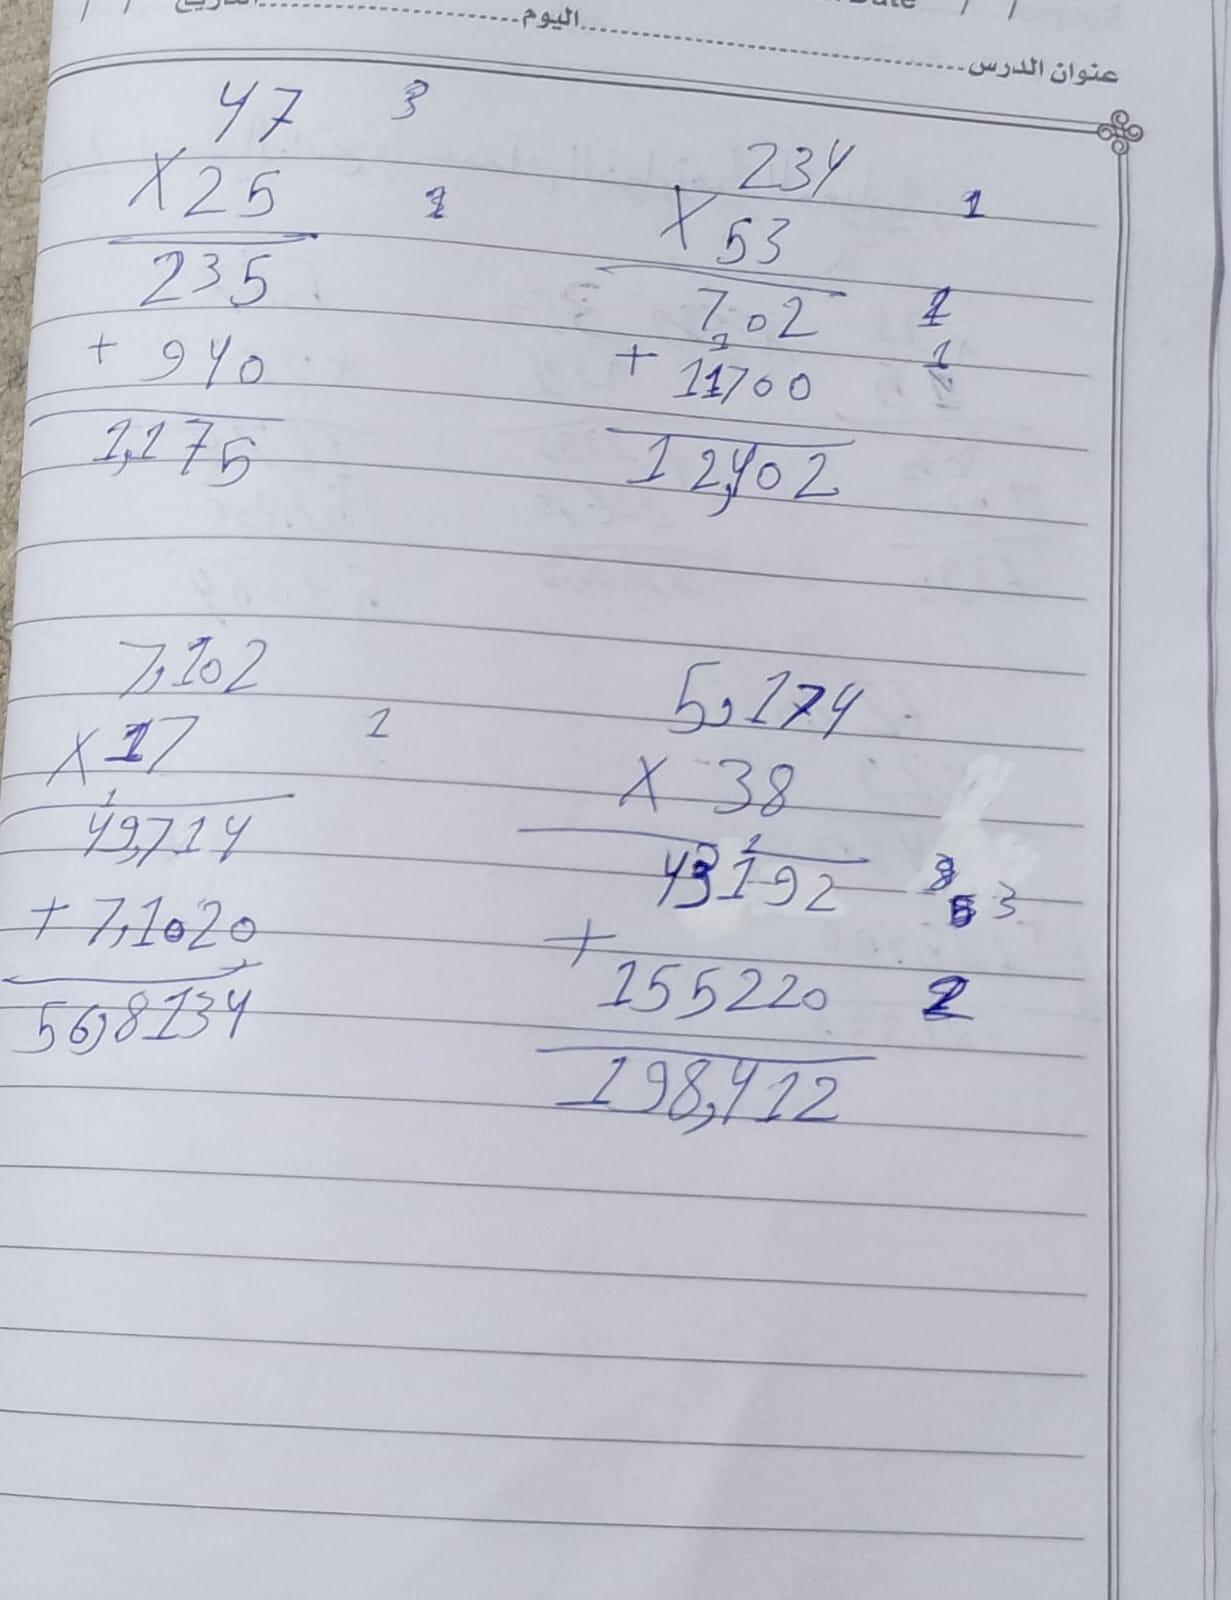 اليوم
عنوان الدرس
47 3
X 25 1
235
+ 940
1,175
234 1
X 53
7,02 1
+ 11700 1
12,402
7,102
X 17 1
49,714
+ 7,1020
56,8134
5,174
X 38
43192 3
+
155220 2
198,412